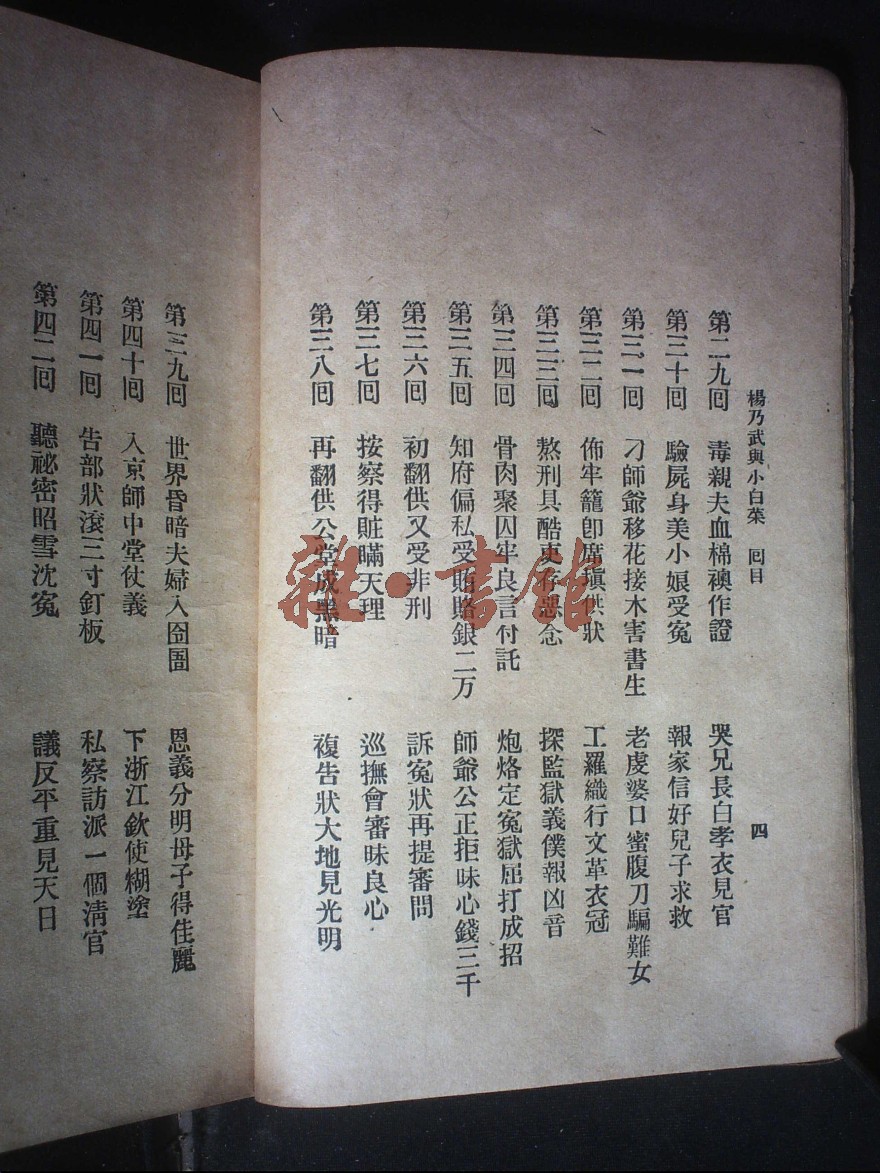 楊乃武與小白菜 回目
四
第二九回 毒親夫血棉襖作證 哭兄長白孝衣見官
第三十回 驗屍身美小娘受冤 報家信好兒子求救
第三一回 刁師爺移花接木害書生 老虔婆口蜜腹刀騙難女
第三二回 佈牢籠卽席塡供狀 工羅織行文革衣冠
第三三回 熬刑具酷吏存惡念 探監獄義僕報凶音
第三四回 骨肉聚囚牢良言付託 炮烙定冤獄屈打成招
第三五回 知府偏私受賄賂銀二万 師爺公正拒昧心錢三千
第三六回 初翻供又受非刑 訴冤狀再提審問
第三七回 按察得賍瞞天理 巡撫會審昧良心
第三八回 再翻供公堂成黑暗 複告狀大地見光明
第三九回 世界昏暗夫婦入囹圄 恩義分明母子得佳麗
第四十回 入京師中堂仗義 下浙江欽使糊塗
第四一回 告部狀滾三寸釘板 私察訪派一個淸官
第四二回 聽祕密昭雪沈冤 議反平重見天日
雜·書館